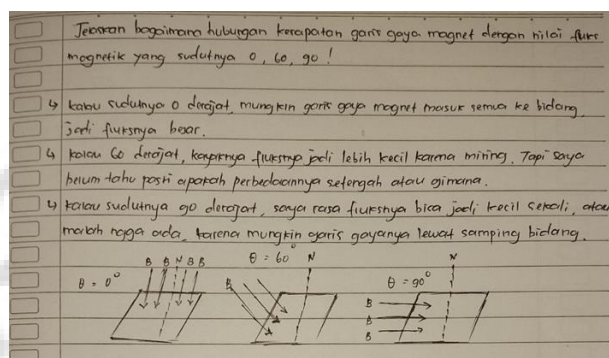 Jelaskan bagaimana hubungan kerapatan garis gaya magnet dengan nilai fluks
magnetik yang sudutnya 0, 60, 90!
↳ kalau sudutnya 0 derajat, mungkin garis gaya magnet masuk semua ke bidang,
jadi fluksnya besar.
↳ kalau 60 derajat, kayaknya fluksnya jadi lebih kecil karena miring. Tapi saya
belum tahu pasti apakah perbedaannya setengah atau gimana.
↳ kalau sudutnya 90 derajat, saya rasa fluksnya bisa jadi kecil sekali, atau
malah ngga ada, karena mungkin garis gayanya lewat samping bidang.
θ = 0°
B B N B B
θ = 60°
B
N
θ = 90°
N
B
B
B